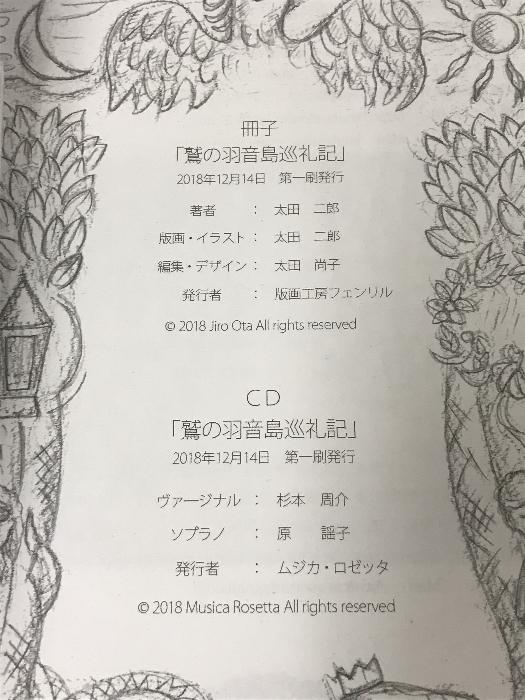 冊子
「鷲の羽音島巡礼記」
2018年12月14日　第一刷発行
著者　：　太田　二郎
版画・イラスト：　太田　二郎
編集・デザイン：　太田　尚子
発行者　：　版画工房フェンリル
© 2018 Jiro Ota All rights reserved
CD
「鷲の羽音島巡礼記」
2018年12月14日　第一刷発行
ヴァージナル：　杉本　周介
ソプラノ　：　原　謡子
発行者　：　ムジカ・ロゼッタ
© 2018 Musica Rosetta All rights reserved